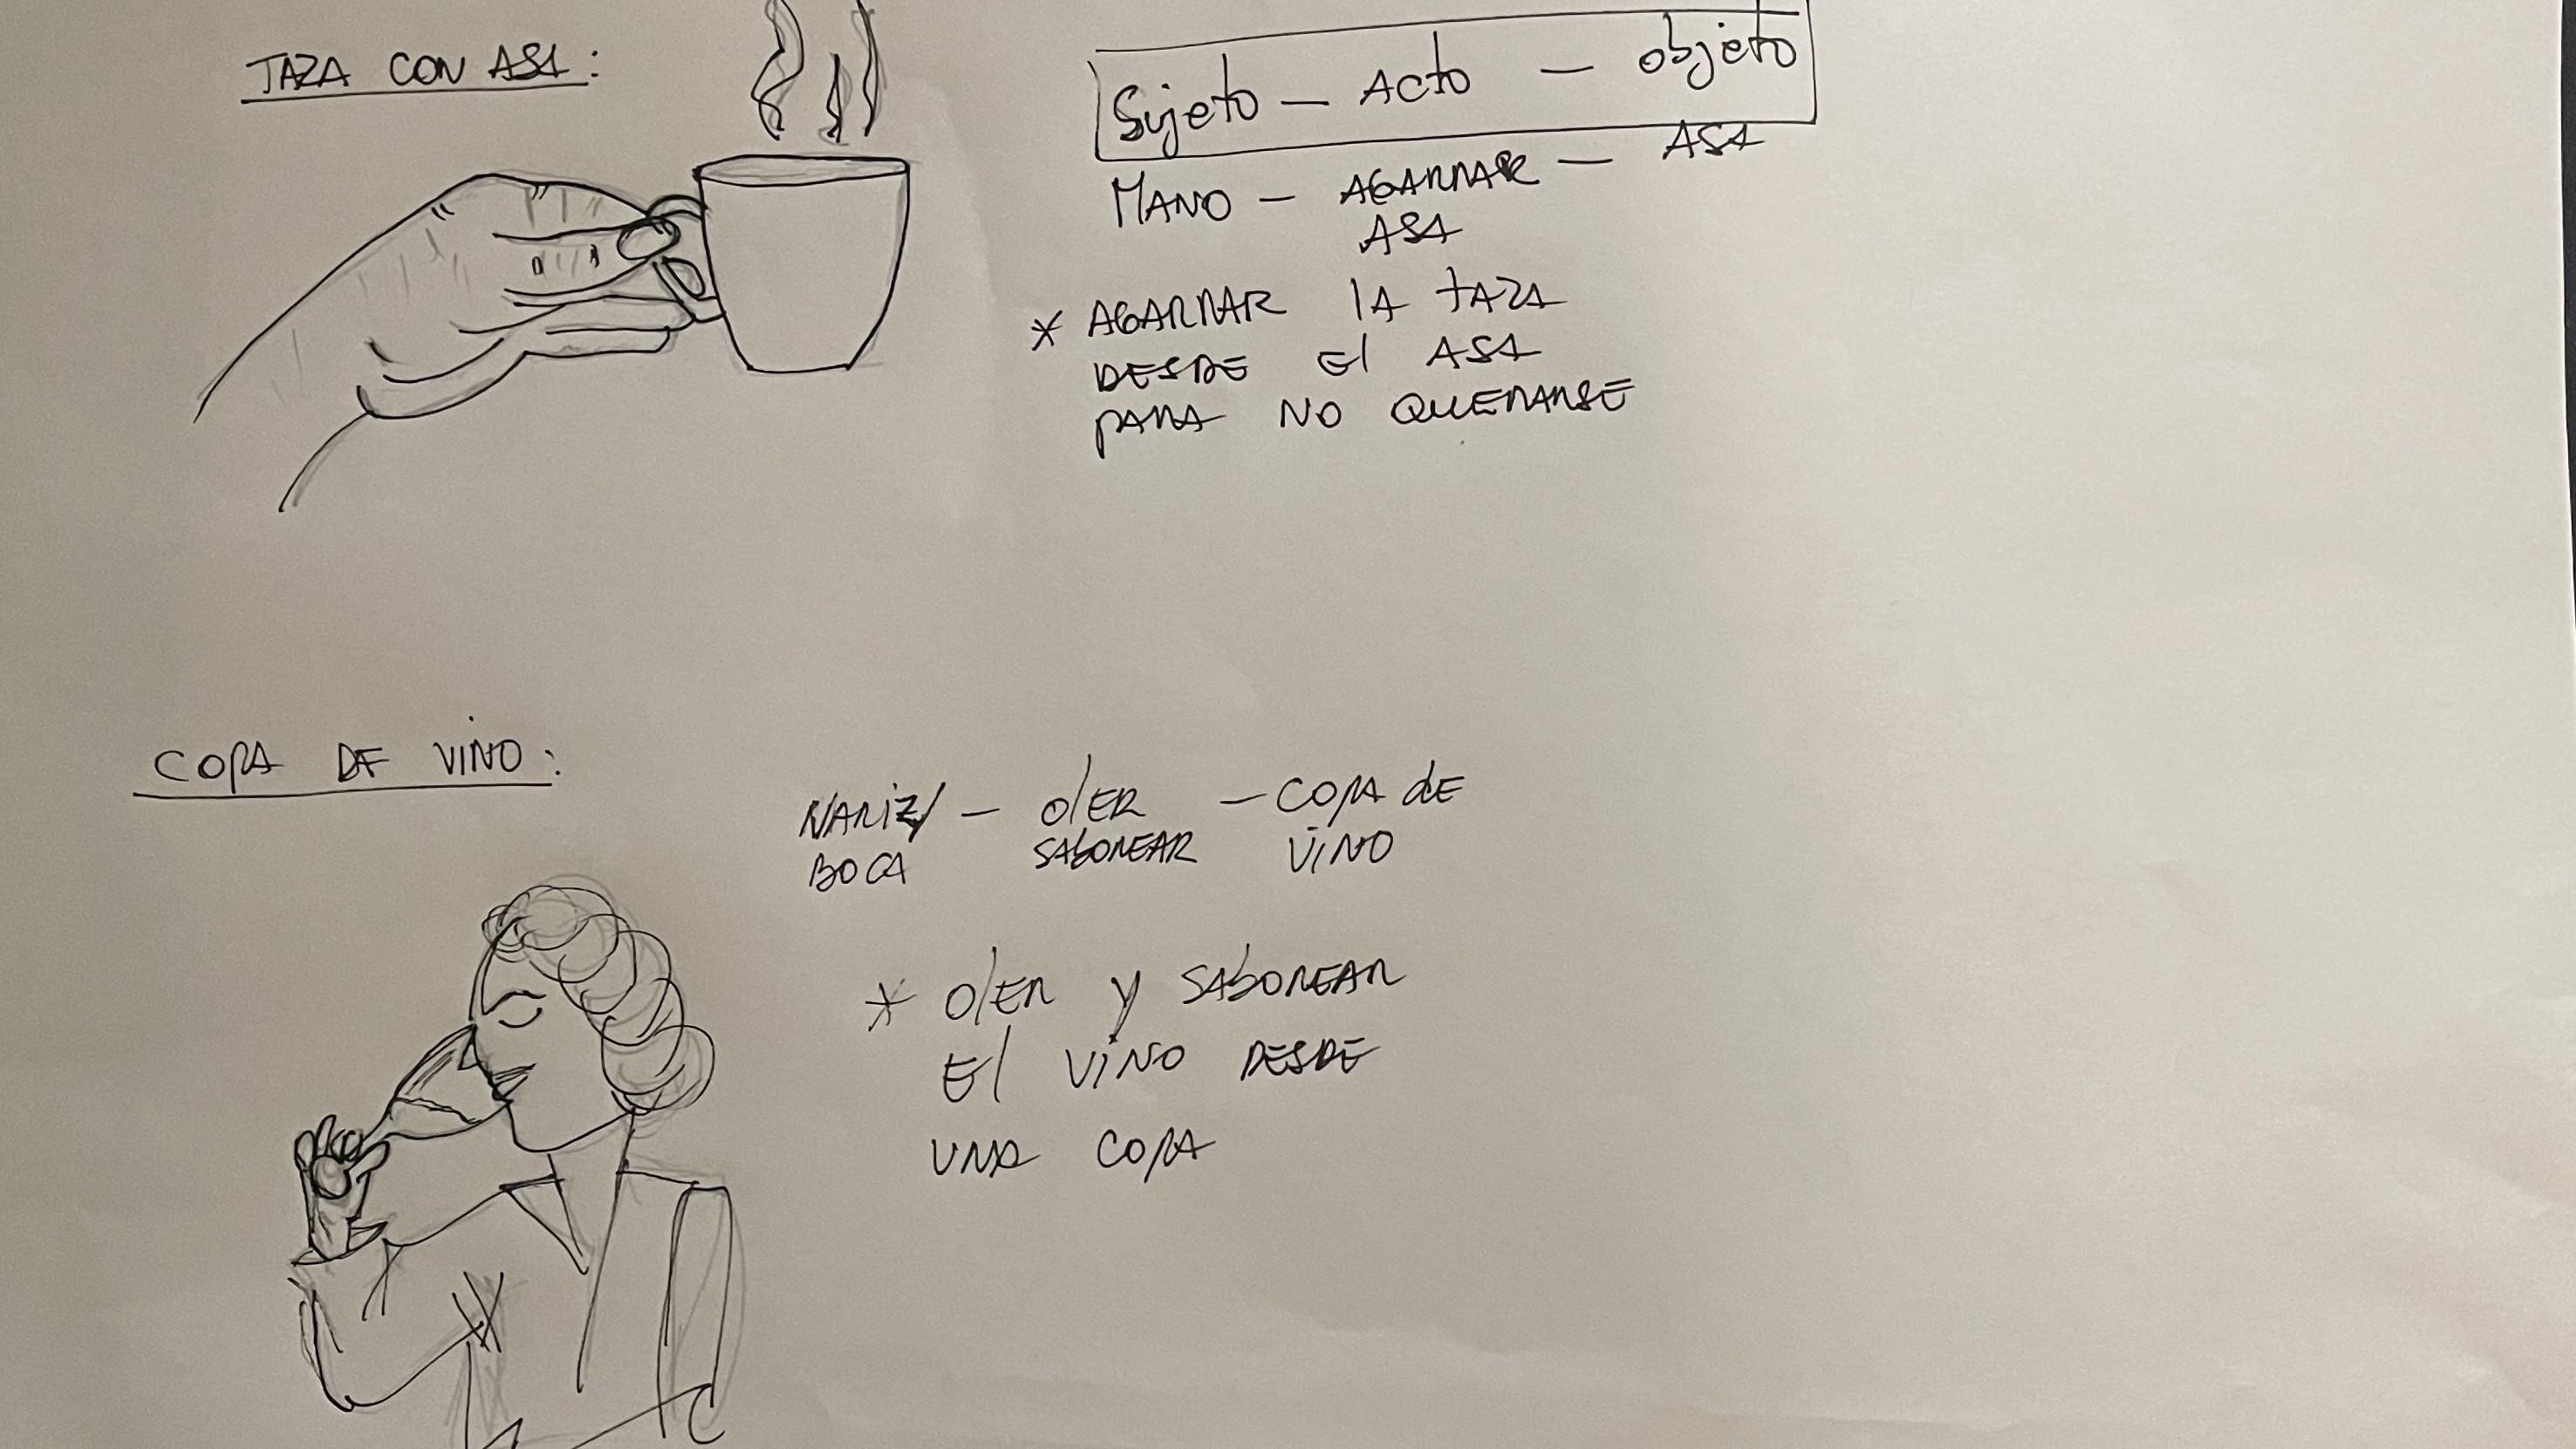 TAZA CON ASA:
Sujeto — Acto — objeto
MANO — AGARRAR — ASA
ASA
* AGARRAR LA TAZA
DESDE El ASA
PARA NO QUEMARSE
COPA DE VINO:
NARIZ/ — OlER — COPA dE
BOCA SABOREAR VINO
* OlER y SABOREAR
El VINO DESDE
UNA COPA